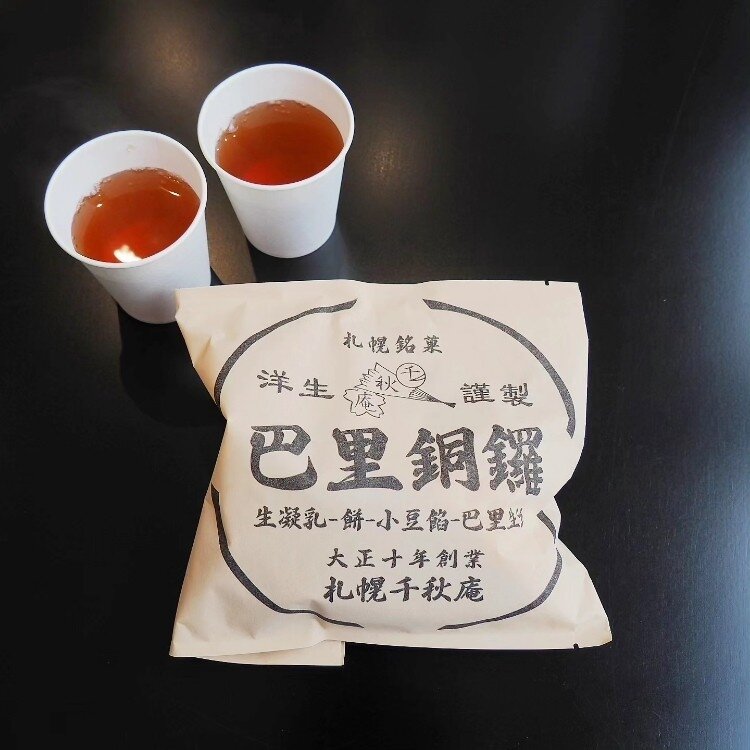 札幌銘菓
洋生 千秋庵 謹製
巴里銅鑼
生凝乳-餅-小豆餡-巴里生
大正十年創業
札幌千秋庵